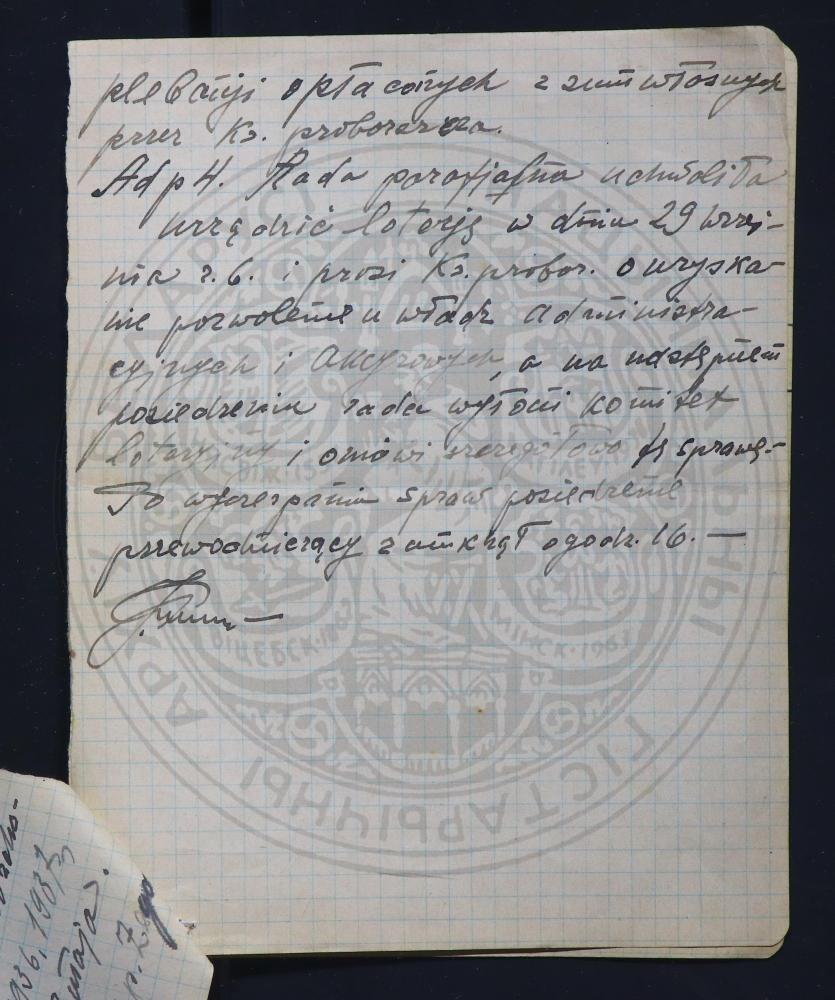 plebańji opłaconych z sum własnych
przez Ks. proboszcza.
Ad p 4. Rada parafjalna uchwaliła
urządzić loterję w dniu 29 wrześ-
nia r.b. i prosi Ks. probor. o uzyska-
nie pozwolenie u władz administra-
cyjnych i Akcyzowych, a na następnem
posiedzeniu rada wyłoni komitet
loteryjny i omówi szczegółowo tę sprawę.-
Po wyczerpaniu spraw posiedzenie
przewodniczący zamknął o godz. 16. —
АРХІЎ
ГІСТАРЫЧНЫ
ВІЦЕБСК·1863
МІНСК·1963
936, 1937
p. 7